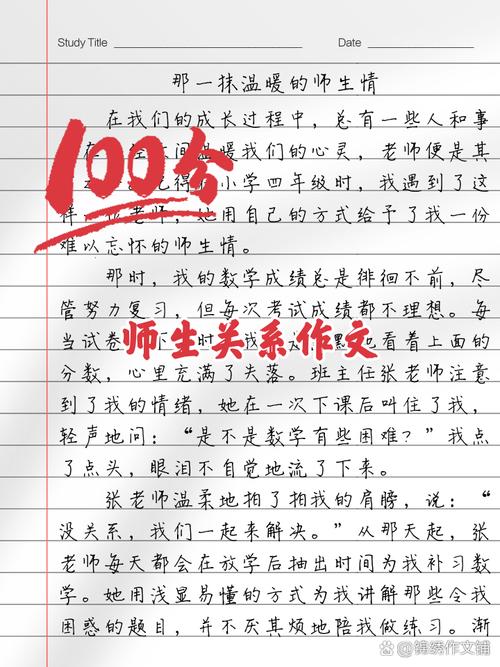 Study Title
Date
那一抹温暖的师生情
在我们的成长过程中，总有一些人和事
在 间温暖我们的心灵，老师便是其
记得 小学四年级时，我遇到了这
样 老师，她用自己的方式给予了我一份
难以忘怀的师生情。
100分
那时，我的数学成绩总是徘徊不前，尽
管努力复习，但每次考试成绩都不理想。每
当试卷 下 时 我 默 看着上面的
师生关系作文
分数，心里充满了失落。班主任张老师注意
到了我的情绪，她在一次下课后叫住了我，
轻声地问：“是不是数学有些困难？”我点
了点头，眼泪不自觉地流了下来。
张老师温柔地拍了拍我的肩膀，说：“
没关系，我们一起来解决。”从那天起，张
老师每天都会在放学后抽出时间为我补习数
学。她用浅显易懂的方式为我讲解那些令我
困惑的题目，并不厌其烦地陪我做练习。渐
锦绣作文铺